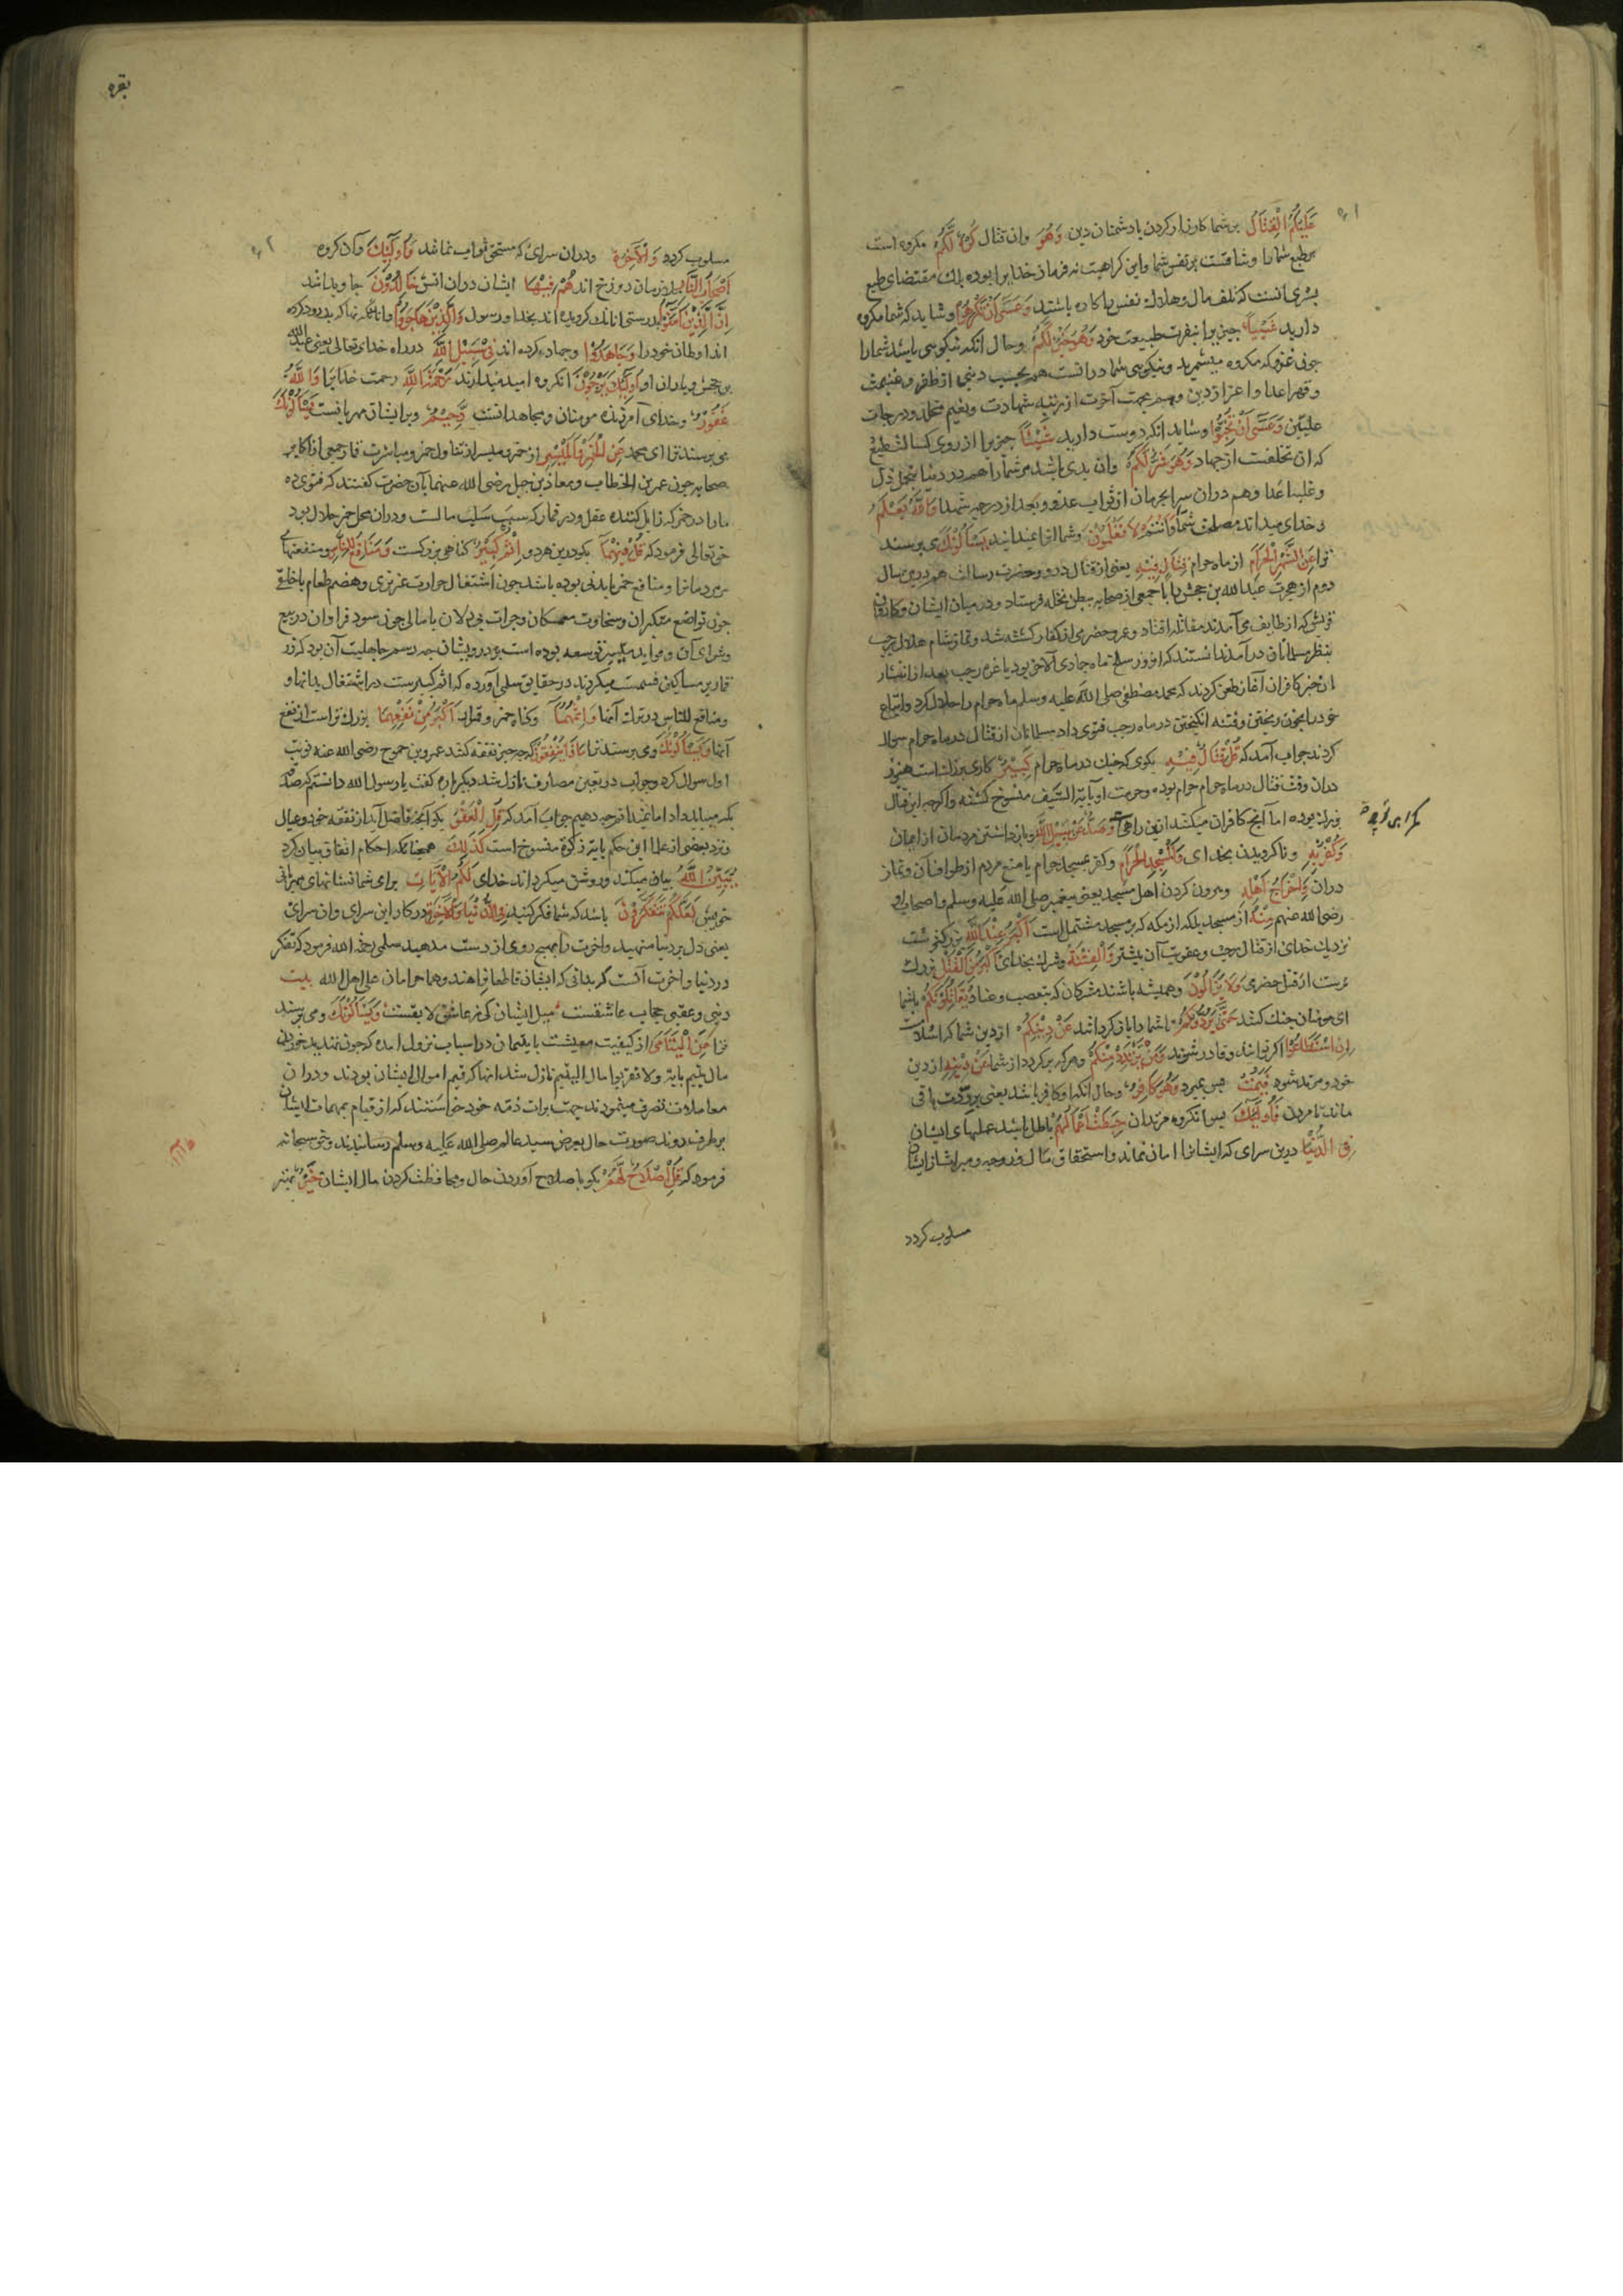 عَلَیْکُمُ الْقِتَالُ بر شما کارزار کردن با دشمنان دین وَهُوَ وان قتال کُرْهٌ لَّکُمْ مکروه است
بر طبع شما را وشاقست بر نفس شما واین کراهیت نه فرمان خدایرا بوده بلک مقتضای طبع
بشری انست که تلف مال وهلاك نفس را کاره باشد وَعَسَی أَنْ تَکْرَهُوا وشاید که شما مکروه
دارید شَیْئًا چیزیرا بنفرت طبیعت خود وَهُوَ خَیْرٌ لَّکُمْ وحال انکه نیکویی باشد شما را
چون غزو که مکروه میشمرید ونیکویی شما درانست هم بحسب دنیی از ظفر وغنیمت
وقهر اعدا واعزاز دین وهم بجهت آخرت از رتبه شهادت ونعیم مخلد ودرجات
علیین وَعَسَی أَنْ تُحِبُّوا وشاید انکه دوست دارید شَیْئًا چیزیرا از روی کسالت طبع
که ان تخلفست از جهاد وَهُوَ شَرٌّ لَّکُمْ وان بدی باشد مر شما را هم در دنیا بتحمل ذل
وغلبه اعدا وهم دران سرا بحرمان از ثواب غزو وبعد از درجه شهدا وَاللَّهُ یَعْلَمُ
وخدای میداند مصلحت شما وَأَنْتُمْ لَا تَعْلَمُونَ وشما انرا نمیدانید یَسْأَلُونَكَ می پرسند
ترا عَنِ الشَّهْرِ الْحَرَامِ از ماه حرام قِتَالٍ فِیهِ یعنی از قتال درو وحضرت رسالت هم درین سال
دوم از هجرت عبد الله بن جحش را با جمعی از صحابه ببطن نخله فرستاد ودر میان ایشان وکاروان
قریش که از طایف می آمدند مقاتله افتاد وعمرو حضرمی از کفار کشته شد ونماز شام هلال رجب
بنظر مسلمانان درآمد ندانستند که انروز سلخ ماه جمادی الاخری بود یا غره رجب بعد از انتشار
این خبر کافران آغاز طعن کردند که محمد مصطفی صلی الله علیه وسلم ماه حرام را حلال کرد واتباع
خود را بخون ریختن وفتنه انکیختن در ماه رجب فتوی داد مسلمانان از قتال در ماه حرام سوال
کردند جواب آمد که قُلْ قِتَالٌ فِیهِ بکوی که جنك در ماه حرام کَبِیرٌ کاری بزرکست هنوز
دران وقت قتال در ماه حرام حرام بود وحرمت او بآیة السیف منسوخ کشته واکرچه این قتال
بزرك بوده اما آنچه کافران میکنند ازین راهی وَصَدٌّ عَنْ سَبِیلِ اللَّهِ وبازداشتن مردمان از ایمان
وَکُفْرٌ بِهِ وناکرویدن بخدای وَالْمَسْجِدِ الْحَرَامِ وکفر بمسجد حرام یا منع مردم از طواف آن ونماز
دران وَإِخْرَاجُ أَهْلِهِ وبیرون کردن اهل مسجد یعنی پیغمبر صلی الله علیه وسلم واصحاب او
رضی الله عنهم مِنْهُ از مسجد بلکه از مکه که بر مسجد مشتمل است أَکْبَرُ عِنْدَ اللَّهِ بزرکتر است
نزدیك خدای از قتال رجب وعقوبت آن بیشتر وَالْفِتْنَةُ وشرك بخدای أَکْبَرُ مِنَ الْقَتْلِ بزرك
ترست از قتل حضرمی وَلَا یَزَالُونَ وهمیشه باشند مشرکان که بتعصب وعناد یُقَاتِلُونَکُمْ با شما
ای مومنان جنك کنند حَتَّی یَرُدُّوکُمْ تا شما را بازکردانند عَنْ دِینِکُمْ از دین شما که اسلامست
إِنِ اسْتَطَاعُوا اکر توانند وقادر شوند وَمَنْ یَرْتَدِدْ مِنْکُمْ وهرکه برکردد از شما عَنْ دِینِهِ از دین
خود ومرتد شود فَیَمُتْ پس بمیرد وَهُوَ کَافِرٌ وحال انکه او کافر باشد یعنی بر ردت باقی
ماند تا مردن فَأُولَئِكَ پس انکروه مرتدان حَبِطَتْ أَعْمَالُهُمْ باطل باشد عملهای ایشان
فِی الدُّنْیَا درین سرای که ایشانرا امان نماند واستحقاق مال وزوجه ومیراث از ایشان
مسلوب کردد
بقره
مسلوب کردد وَالْآخِرَةِ ودران سرای که مستحق ثواب نماند وَأُولَئِكَ وآن کروه
أَصْحَابُ النَّارِ ملازمان دوزخ اند هُمْ فِیهَا ایشان دران اتش خَالِدُونَ جاوید باشند
إِنَّ الَّذِینَ آمَنُوا بدرستی انانك کرویده اند بخدا ورسول وَالَّذِینَ هَاجَرُوا وانانکه بدرود کرده
اند اوطان خود را وَجَاهَدُوا وجهاد کرده اند فِی سَبِیلِ اللَّهِ در راه خدای تعالی یعنی عبد الله
بن جحش ویاران او أُولَئِكَ یَرْجُونَ انکروه امید میدارند رَحْمَتَ اللَّهِ رحمت خدایرا وَاللَّهُ
غَفُورٌ وخدای آمرزنده مومنان ومجاهدانست رَّحِیمٌ وبر ایشان مهربانست یَسْأَلُونَكَ
می پرسند ترا ای محمد عَنِ الْخَمْرِ وَالْمَیْسِرِ از خمر ومیسر از تناول خمر ومباشرت قمار جمعی از اکابر
صحابه چون عمر بن الخطاب ومعاذ بن جبل رضی الله عنهما بآن حضرت کفتند که فتوی ده
ما را در خمر که زایل کننده عقل ودر قمار که سبب سلب مالست ودران محل خمر حلال بود
حق تعالی فرمود که قُلْ فِیهِمَا بکو درین هر دو إِثْمٌ کَبِیرٌ کناهی بزرکست وَمَنَافِعُ لِلنَّاسِ ومنفعتهای
مر مردمانرا ومنافع خمر یا بدنی بوده باشد چون اشتغال حرارت غریزی وهضم طعام یا خلقی
چون تواضع متکبران وسخاوت ممسکان وجرات بی دلان یا مالی چون سود فراوان در بیع
وشرای آن وفواید میسر توسعه بوده است بر درویشان چه رسم جاهلیت آن بود که زر
قمار بر مساکین قسمت میکردند در حقایق سلمی آورده که اثم کبیرست در اشتغال بدانها و
ومنافع للناس در ترك آنها وَإِثْمُهُمَا وکناه خمر وقمار أَکْبَرُ مِنْ نَفْعِهِمَا بزرك تر است از نفع
آنها وَیَسْأَلُونَكَ ومی پرسند ترا مَاذَا یُنْفِقُونَ که چه چیز نفقه کنند عمرو بن جموح رضی الله عنه نوبت
اول سوال کرد وجواب در تعیین مصارف نازل شد دیکرباره کفت یا رسول الله دانستم که صدقه
بکه میباید داد اما نمیدانم چه دهیم جواب آمد که قُلِ الْعَفْوَ بکو آنچه فاضل آید از نفقه خود وعیال
ونزد بعضی از علما این حکم بآیة زکوة منسوخ است کَذَلِكَ همچنانکه احکام انفاق بیان کرد
یُبَیِّنُ اللَّهُ بیان میکند وروشن میکرداند خدای لَکُمُ الْآیَاتِ برای شما نشانهای مهربانی
خویش لَعَلَّکُمْ تَتَفَکَّرُونَ باشد که شما فکر کنید فِی الدُّنْیَا وَالْآخِرَةِ در کار این سرای وان سرای
یعنی دل بر دنیا منهید واخرت را بهیچ روی از دست مدهید سلمی رحمه الله فرمود که تفکر
در دنیا واخرت آنست که بدانی که ایشان قاطعان راهند وهما حرامان علی اهل الله بیت
دنیی وعقبی حجاب عاشقست میل ایشان کی ز عاشق لایقست وَیَسْأَلُونَكَ ومی پرسند
ترا عَنِ الْیَتَامَی از کیفیت معیشت با یتیمان در اسباب نزول امده که چون تهدید خوردن
مال یتیم بآیة ولا تقربوا مال الیتیم نازل شد انها که قیم اموال ایشان بودند ودران
معاملات تصرف مینمودند جهت برات ذمه خود خواستند که از قیام بمهمات ایشان
بر طرف روند صورت حال بعرض سید عالم صلی الله علیه وسلم رسانیدند وحق سبحانه
فرمود که قُلْ إِصْلَاحٌ لَّهُمْ بکو باصلاح آوردن حال ومحافظت کردن مال ایشان خَیْرٌ بهتر